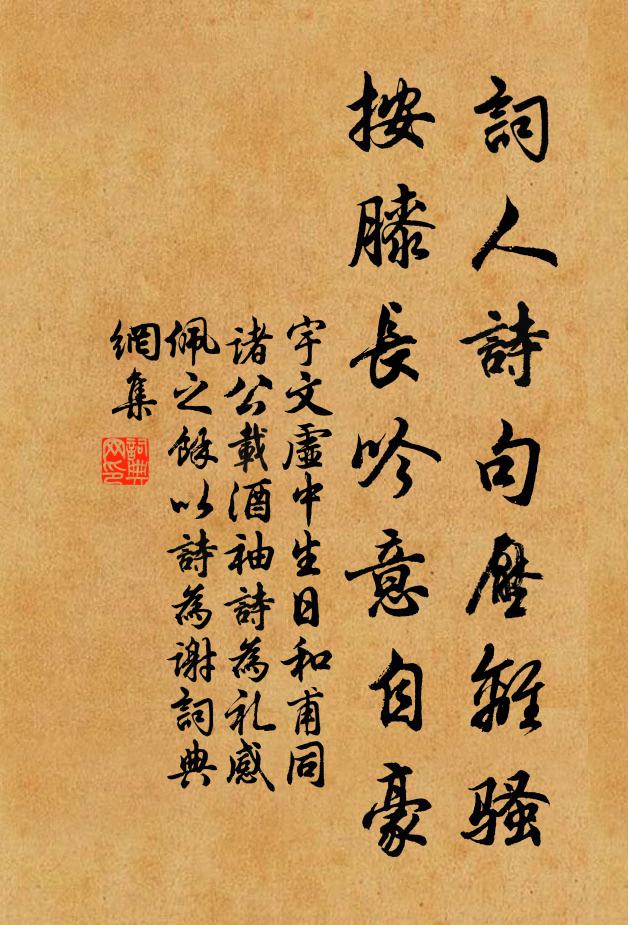 詞人詩句壓離騷
按膝長吟意自豪
宇文虛中生日和甫同
诸公載酒袖詩為礼感
佩之餘以詩為谢詞典
網集
詞典
网印